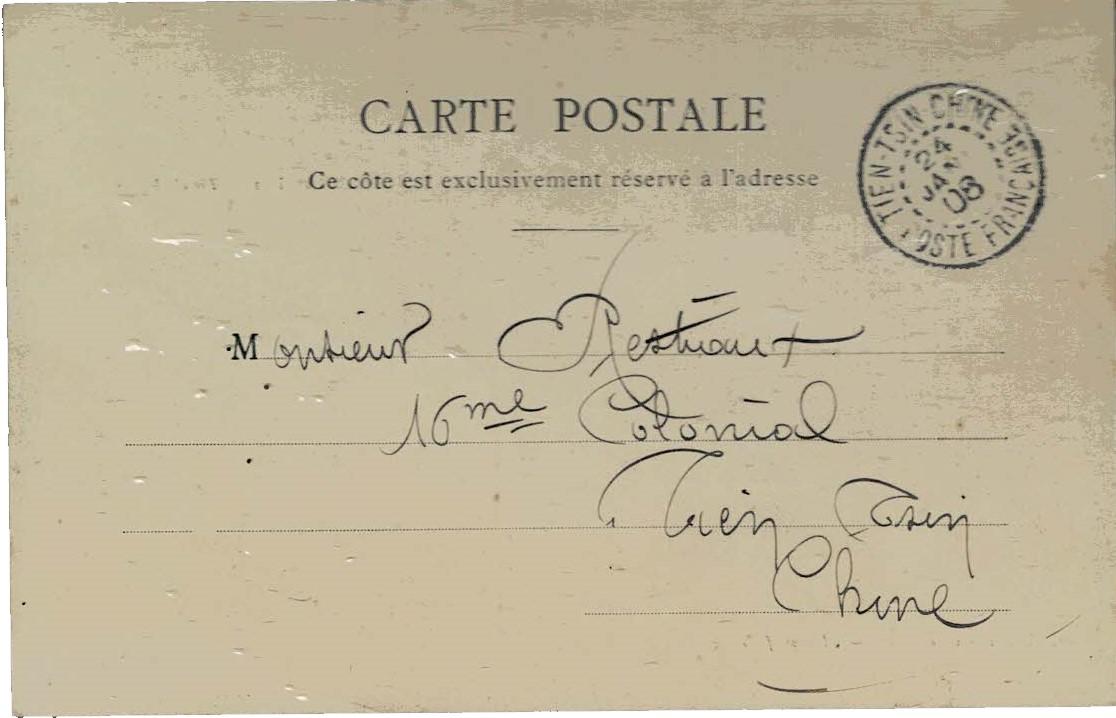 CARTE POSTALE
Ce côte est exclusivement réservé à l'adresse
TIEN-TSIN-CHINE
24
JA
03
POSTE FRANÇAISE
Monsieur
16me Colonial
Tien Tsin
Chine